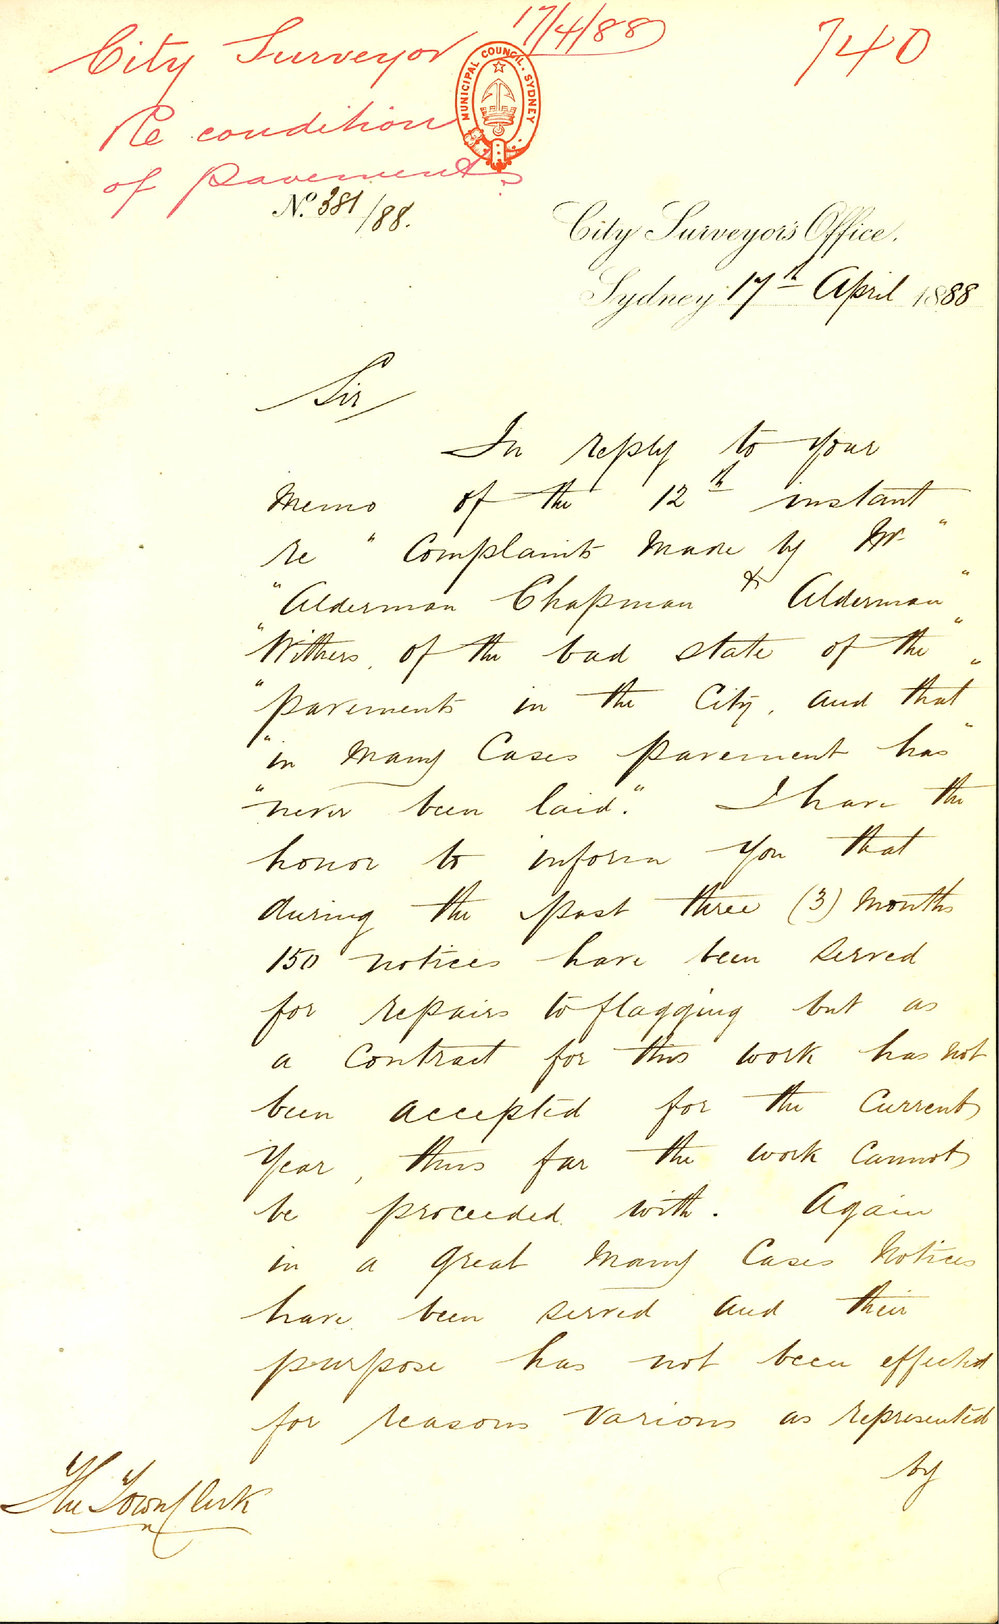 17/4/88
City Surveyor
740
Re condition
of pavements
MUNICIPAL COUNCIL. SYDNEY
No. 381/88.
City Surveyor's Office.
Sydney 17th April 1888
Sir
In reply to your
Memo of the 12th instant
re " Complaints made by Mr "
"Alderman Chapman & Alderman"
"Withers, of the bad state of the "
"pavements in the City, and that "
"in many Cases pavement has"
"never been laid." I have the
honor to inform you that
during the past three (3) months
150 notices have been served
for repairs to flagging but as
a Contract for this work has not
been accepted for the Current
Year, thus far the work Cannot
be proceeded with. Again
in a great many Cases Notices
have been served and their
purpose has not been effected
for reasons various as represented
by
The Town Clerk